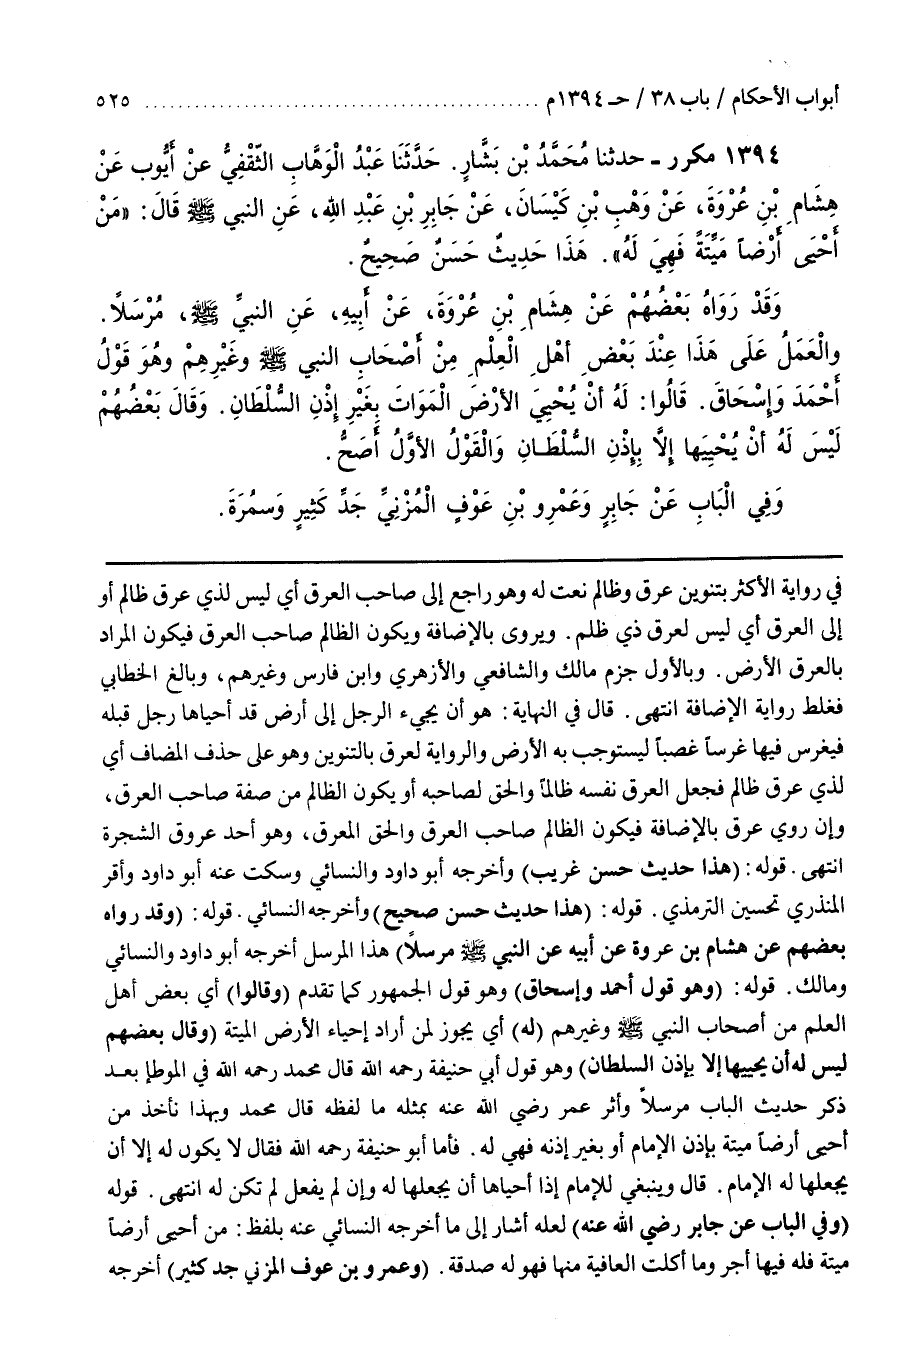 أبواب الأحكام / باب ٣٨ / حـ ١٣٩٤م ........................................ ٥٢٥
١٣٩٤ مكرر ـ حدثنا مُحَمَّدُ بْن بَشَّارٍ. حَدَّثَنَا عَبْدُ الْوَهَّابِ الثّقْفِيُّ عنْ أَيُّوب عَنْ
هِشَامِ بْنِ عُرْوَةَ، عَنْ وَهْبِ بْنِ كَيْسَانَ، عَنْ جَابِرِ بْنِ عَبْدِ اللهِ، عَنِ النبي ﷺ قَالَ: «مَنْ
أَحْيَى أَرْضاً مَيِّتَةً فَهِيَ لَهُ». هَذَا حَدِيثٌ حَسَنٌ صَحِيحٌ.
وَقَدْ رَوَاهُ بَعْضُهُمْ عَنْ هِشَامِ بْنِ عُرْوَةَ، عَنْ أَبِيهِ، عَنِ النبيِّ ﷺ، مُرْسَلًا.
والْعَمَلُ عَلَى هَذَا عِنْدَ بَعْضِ أهْلِ الْعِلْمِ مِنْ أَصْحَابِ النبي ﷺ وغَيْرِهِمْ وهُوَ قَوْلُ
أَحْمَدَ وَإِسْحَاقَ. قَالُوا: لَهُ أنْ يُحْيِيَ الأرْضَ المَوَاتَ بِغَيْرِ إِذْنِ السُّلْطَانِ. وَقَالَ بَعْضُهُمْ
لَيْسَ لَهُ أنْ يُحْيِيَها إِلَّا بِإِذْنِ السُّلْطَانِ وَالْقَوْلُ الأوَّلُ أَصَحُّ.
وَفِي الْبَابِ عَنْ جَابِرٍ وَعَمْرِو بْنِ عَوْفٍ الْمُزْنِيِّ جَدِّ كَثِيرٍ وَسمُرَةَ.
في رواية الأكثر بتنوين عرق وظالم نعت له وهو راجع إلى صاحب العرق أي ليس لذي عرق ظالم أو
إلى العرق أي ليس لعرق ذي ظلم. ويروى بالإضافة ويكون الظالم صاحب العرق فيكون المراد
بالعرق الأرض. وبالأول جزم مالك والشافعي والأزهري وابن فارس وغيرهم، وبالغ الخطابي
فغلط رواية الإضافة انتهى. قال في النهاية: هو أن يجيء الرجل إلى أرض قد أحياها رجل قبله
فيغرس فيها غرساً غصباً ليستوجب به الأرض والرواية لعرق بالتنوين وهو على حذف المضاف أي
لذي عرق ظالم فجعل العرق نفسه ظالماً والحق لصاحبه أو يكون الظالم من صفة صاحب العرق،
وإن روي عرق بالإضافة فيكون الظالم صاحب العرق والحق المعرق، وهو أحد عروق الشجرة
انتهى. قوله: (هذا حديث حسن غريب) وأخرجه أبو داود والنسائي وسكت عنه أبو داود وأقر
المنذري تحسين الترمذي. قوله: (هذا حديث حسن صحيح) وأخرجه النسائي. قوله: (وقد رواه
بعضهم عن هشام بن عروة عن أبيه عن النبي ﷺ مرسلاً) هذا المرسل أخرجه أبو داود والنسائي
ومالك. قوله: (وهو قول أحمد وإسحاق) وهو قول الجمهور كما تقدم (وقالوا) أي بعض أهل
العلم من أصحاب النبي ﷺ وغيرهم (له) أي يجوز لمن أراد إحياء الأرض الميتة (وقال بعضهم
ليس له أن يحييها إلا بإذن السلطان) وهو قول أبي حنيفة رحمه الله قال محمد رحمه الله في الموطإ بعد
ذكر حديث الباب مرسلاً وأثر عمر رضي الله عنه بمثله ما لفظه قال محمد وبهذا نأخذ من
أحيى أرضاً ميتة بإذن الإمام أو بغير إذنه فهي له. فأما أبو حنيفة رحمه الله فقال لا يكون له إلا أن
يجعلها له الإمام. قال وينبغي للإمام إذا أحياها أن يجعلها له وإن لم يفعل لم تكن له انتهى. قوله
(وفي الباب عن جابر رضي الله عنه) لعله أشار إلى ما أخرجه النسائي عنه بلفظ: من أحيى أرضاً
ميتة فله فيها أجر وما أكلت العافية منها فهو له صدقة. (وعمرو بن عوف المزني جد كثير) أخرجه